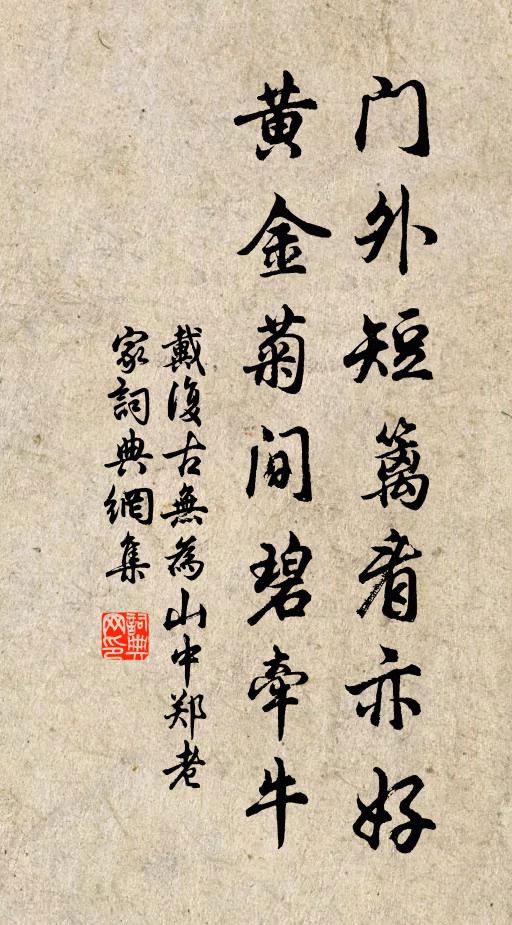 门外短篱看亦好
黄金菊间碧牵牛
戴復古無為山中郑老
家詞典網集
詞典网印